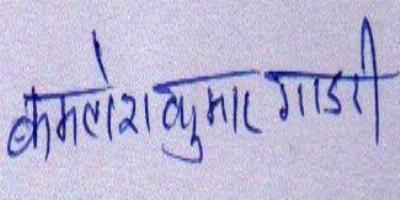 कमलेश कुमार गाडरी